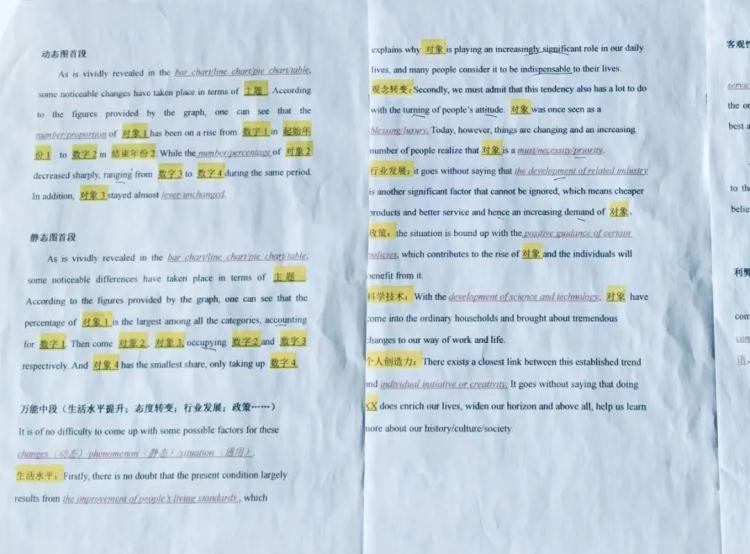 动态图首段
As is vividly revealed in the bar chart/line chart/pie chart/table,
some noticeable changes have taken place in terms of 主题. According
to the figures provided by the graph, one can see that the
number/proportion of 对象 1 has been on a rise from 数字 1 in 起始年
份 1 to 数字 2 in 结束年份 2. While the number/percentage of 对象 2
decreased sharply, ranging from 数字 3 to 数字 4 during the same period.
In addition, 对象 3 stayed almost unchanged.
静态图首段
As is vividly revealed in the bar chart/line chart/pie chart/table,
some noticeable differences have taken place in terms of 主题.
According to the figures provided by the graph, one can see that the
percentage of 对象 1 is the largest among all the categories, accounting
for 数字 1. Then come 对象 2, 对象 3, occupying 数字 2 and 数字 3
respectively. And 对象 4 has the smallest share, only taking up 数字 4.
万能中段（生活水平提升；态度转变；行业发展；政策……）
It is of no difficulty to come up with some possible factors for these
changes（动态）/phenomenon（静态）/situation（通用）.
生活水平：Firstly, there is no doubt that the present condition largely
results from the improvement of people's living standards, which
explains why 对象 is playing an increasingly significant role in our daily
lives, and many people consider it to be indispensable to their lives.
观念转变：Secondly, we must admit that this tendency also has a lot to do
with the turning of people's attitude. 对象 was once seen as a
blessing/luxury. Today, however, things are changing and an increasing
number of people realize that 对象 is a must/necessity/priority.
行业发展：it goes without saying that the development of related industry
is another significant factor that cannot be ignored, which means cheaper
products and better service and hence an increasing demand of 对象.
政策：the situation is bound up with the positive guidance of certain
policies, which contributes to the rise of 对象 and the individuals will
benefit from it.
科学技术：With the development of science and technology, 对象 have
come into the ordinary households and brought about tremendous
changes to our way of work and life.
个人创造力：There exists a closest link between this established trend
and individual initiative or creativity. It goes without saying that doing
XX does enrich our lives, widen our horizon and above all, help us learn
more about our history/culture/society.
客观性
the or
best a
to th
belie
利弊
com
con
语,